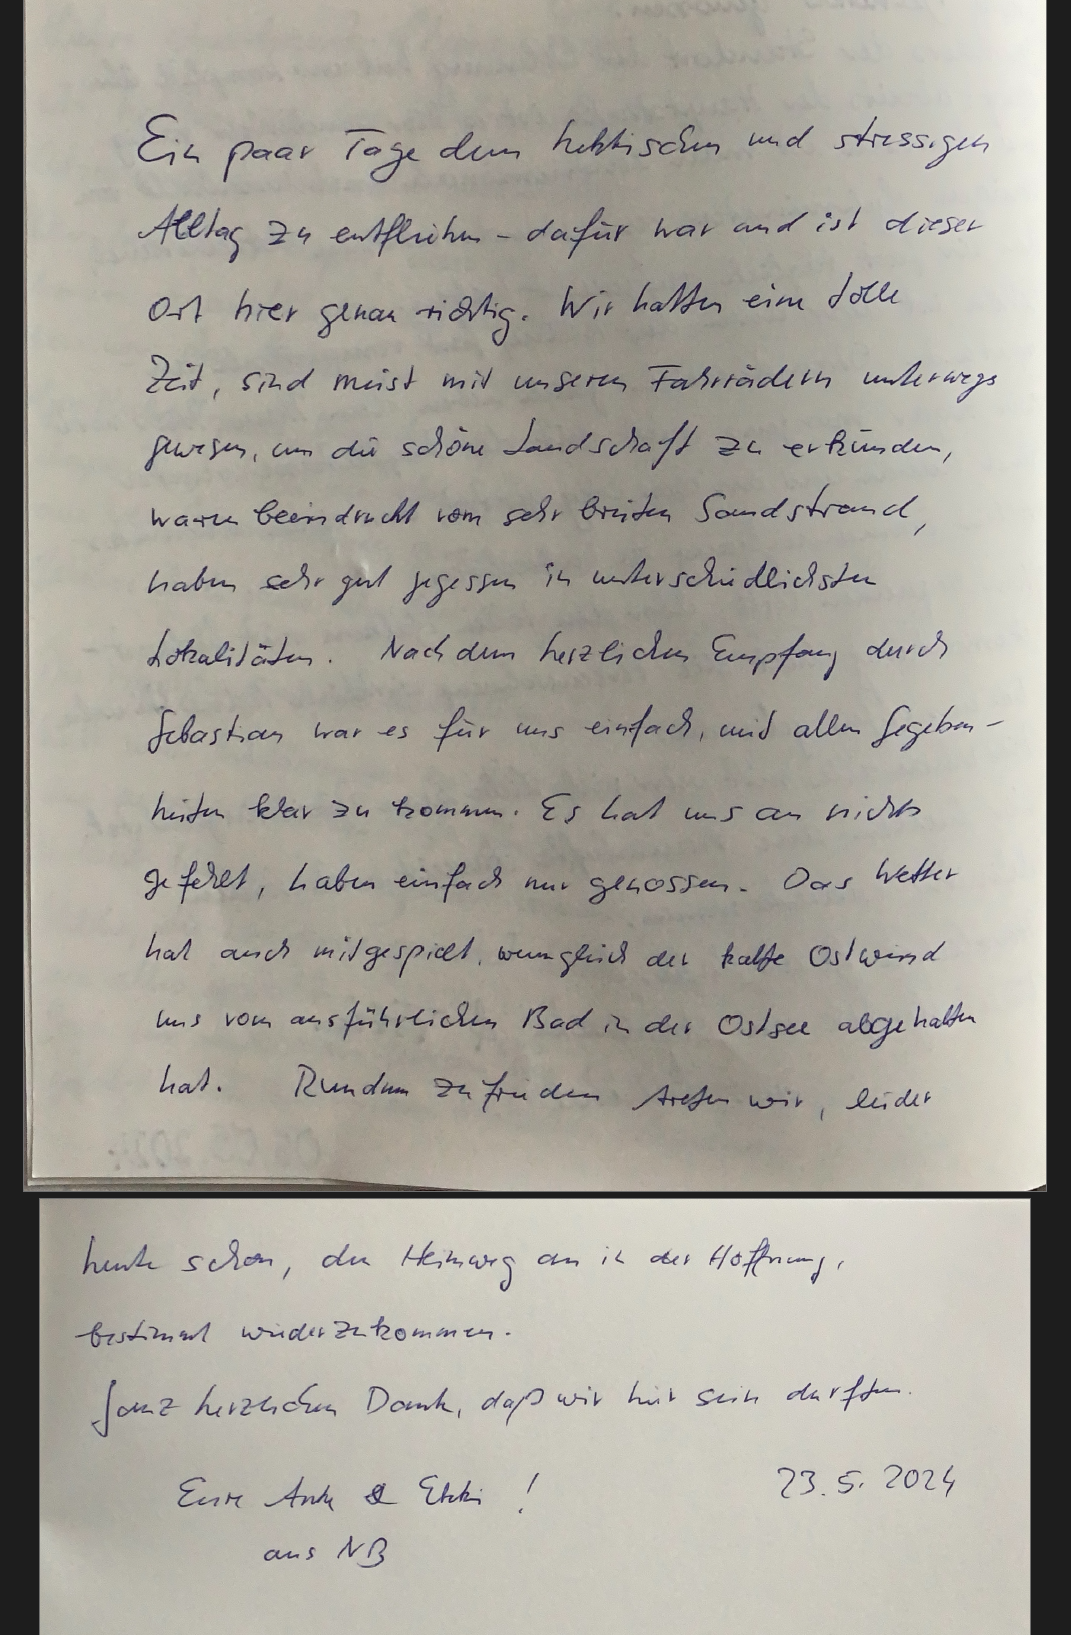 Ein paar Tage dem hektischen und stressigen
Alltag zu entfliehen - dafür war und ist dieser
Ort hier genau richtig. Wir hatten eine tolle
Zeit, sind meist mit unseren Fahrrädern unterwegs
gewesen, um die schöne Landschaft zu erkunden,
waren beeindruckt vom sehr breiten Sandstrand,
haben sehr gut gegessen in unterschiedlichsten
Lokalitäten. Nach dem herzlichen Empfang durch
Sebastian war es für uns einfach, mit allen Gegeben-
heiten klar zu kommen. Es hat uns an nichts
gefehlt, haben einfach nur genossen. Das Wetter
hat auch mitgespielt, wenngleich der kalte Ostwind
uns vom ausführlichen Bad in der Ostsee abgehalten
hat. Rundum zufrieden treten wir, leider
heute schon, den Heimweg an in der Hoffnung,
bestimmt wiederzukommen.
Ganz herzlichen Dank, daß wir hier sein durften.
Eure Anke & Ekki !
23.5.2024
aus NB